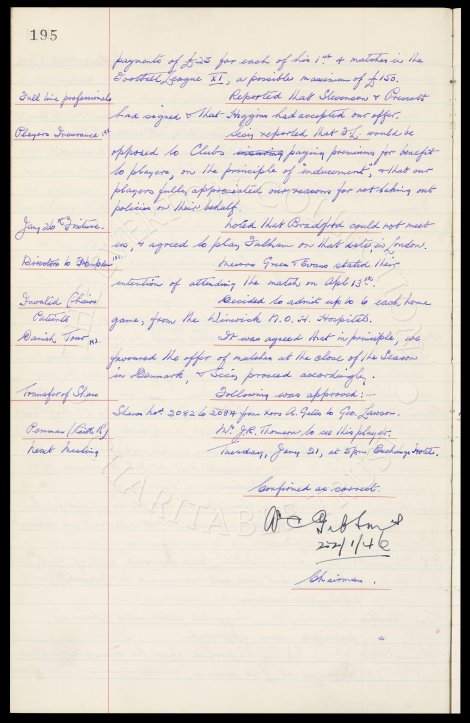 195
payments of £25 for each of his 1st 4 matches in the
Football League XI, a possible maximum of £150.
Full time professionals
Reported that Stevenson & Prescott
had signed & that Higgins had accepted our offer.
Players Insurance
Secy reported that F.L. would be
opposed to Clubs insuring paying premiums for benefit
to players, on the principle of "inducement", & that our
players fully appreciated our reasons for not taking out
policies on their behalf.
Jany 26th Fixture.
Noted that Bradford could not meet
us, & agreed to play Fulham on that date, in London.
Directors to
Messrs Green & Evans stated their
intention of attending the match on Apl 13th.
Invalid Chairs
Patients
Decided to admit up to 6 each home
game, from the Winwick M.O.H. Hospitals.
Danish Tour
It was agreed that in principle, we
favoured the offer of matches at the close of the Season
in Denmark, & Secy proceed accordingly.
Transfer of Share
Following was approved:-
Shares Nos 2082 to 2084 from Exors A. Gates to Geo. Lawson.
Penman (Raith R)
Mr J.R. Thomson to see this player.
Next Meeting
Tuesday, Jany 21, at 5pm. Exchange Hotel.
Confirmed as correct.
W C Gibbons
Chairman.